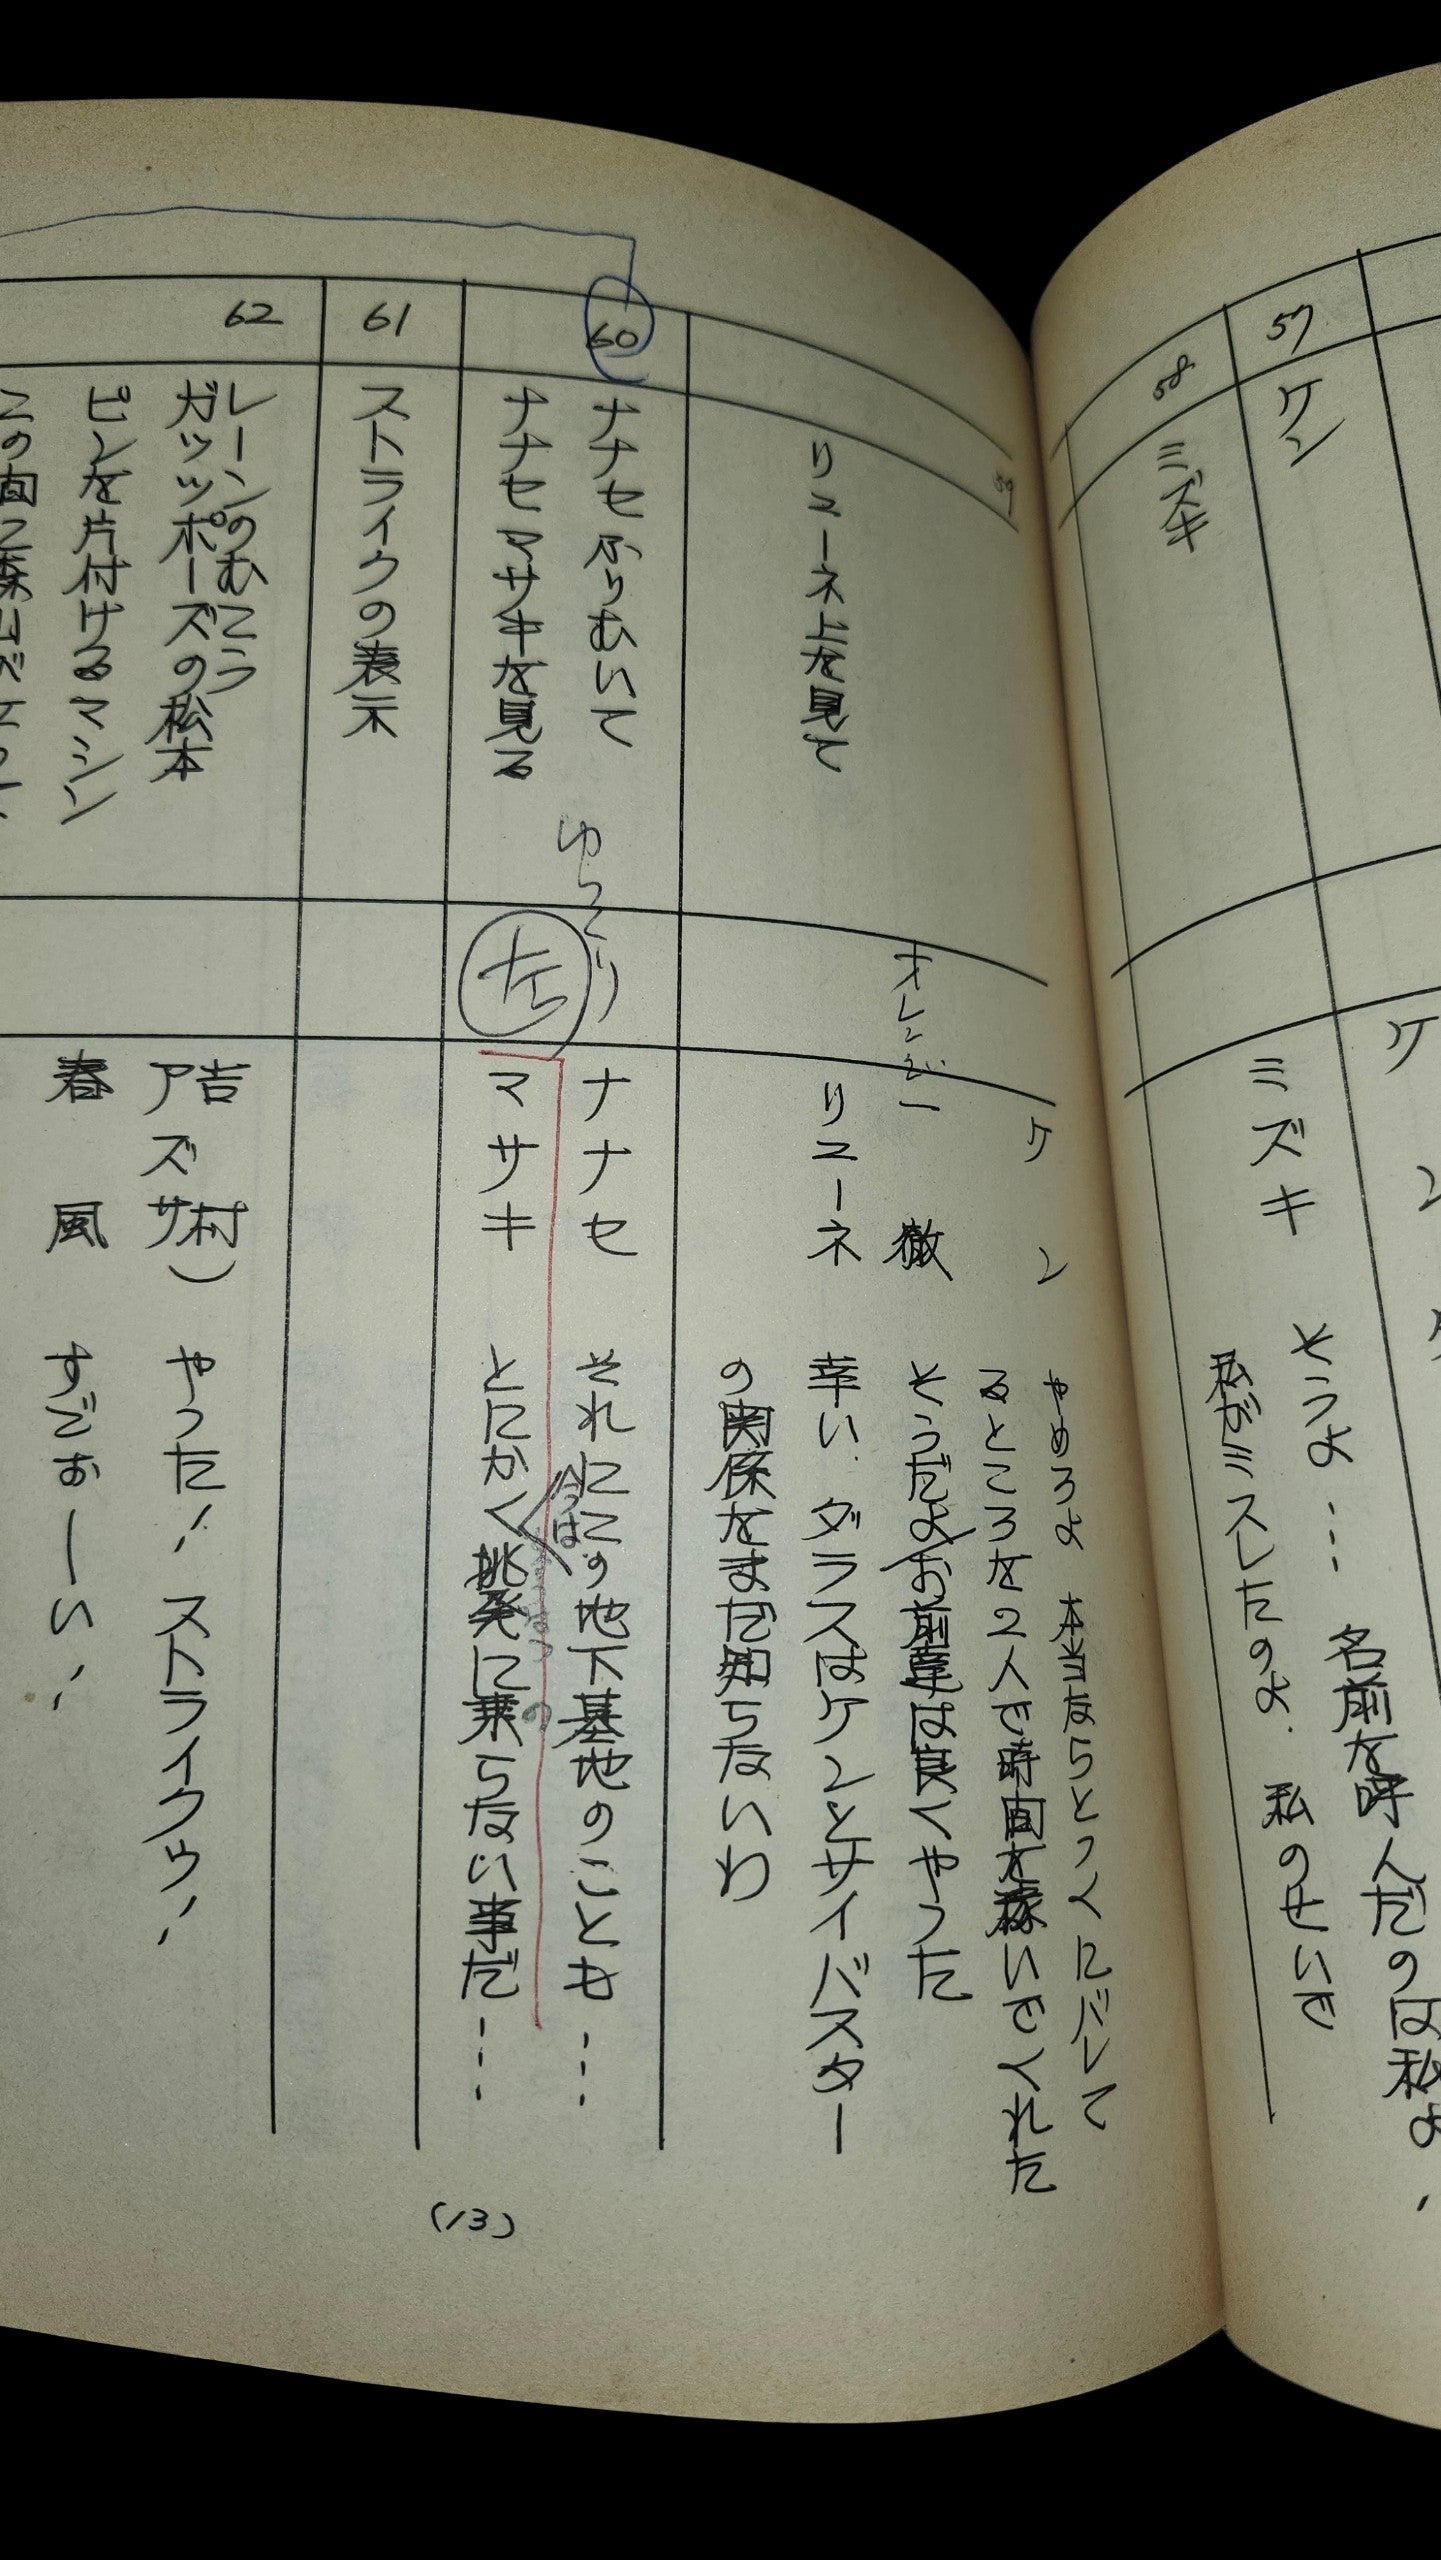 57
ケン
ケン
58
ミズキ
ミズキ
そうよ…名前を呼んだのは私よ、
私がミスしたのよ、私のせいで
59
ケン
やめろよ 本当ならとっくにバレて
るところを2人で時間を稼いでくれた
オレンジ
徹
そうだよお前達は良くやった
リューネ上を見て
リューネ
幸い、ダラスはケンとサイバスター
の関係をまだ知らないわ
60
ナナセふりむいて
ナナセマサキを見る
ゆっくり
左
ナナセ
それにこの地下基地のことも…
マサキ
とにかく挑発に乗らない事だ…
今は
61
ストライクの表示
62
レーンのむこう
ガッツポーズの松本
ピンを片付けるマシン
吉村)
アズサ
やった! ストライクゥ!
春風
すごぉーい!
(13)